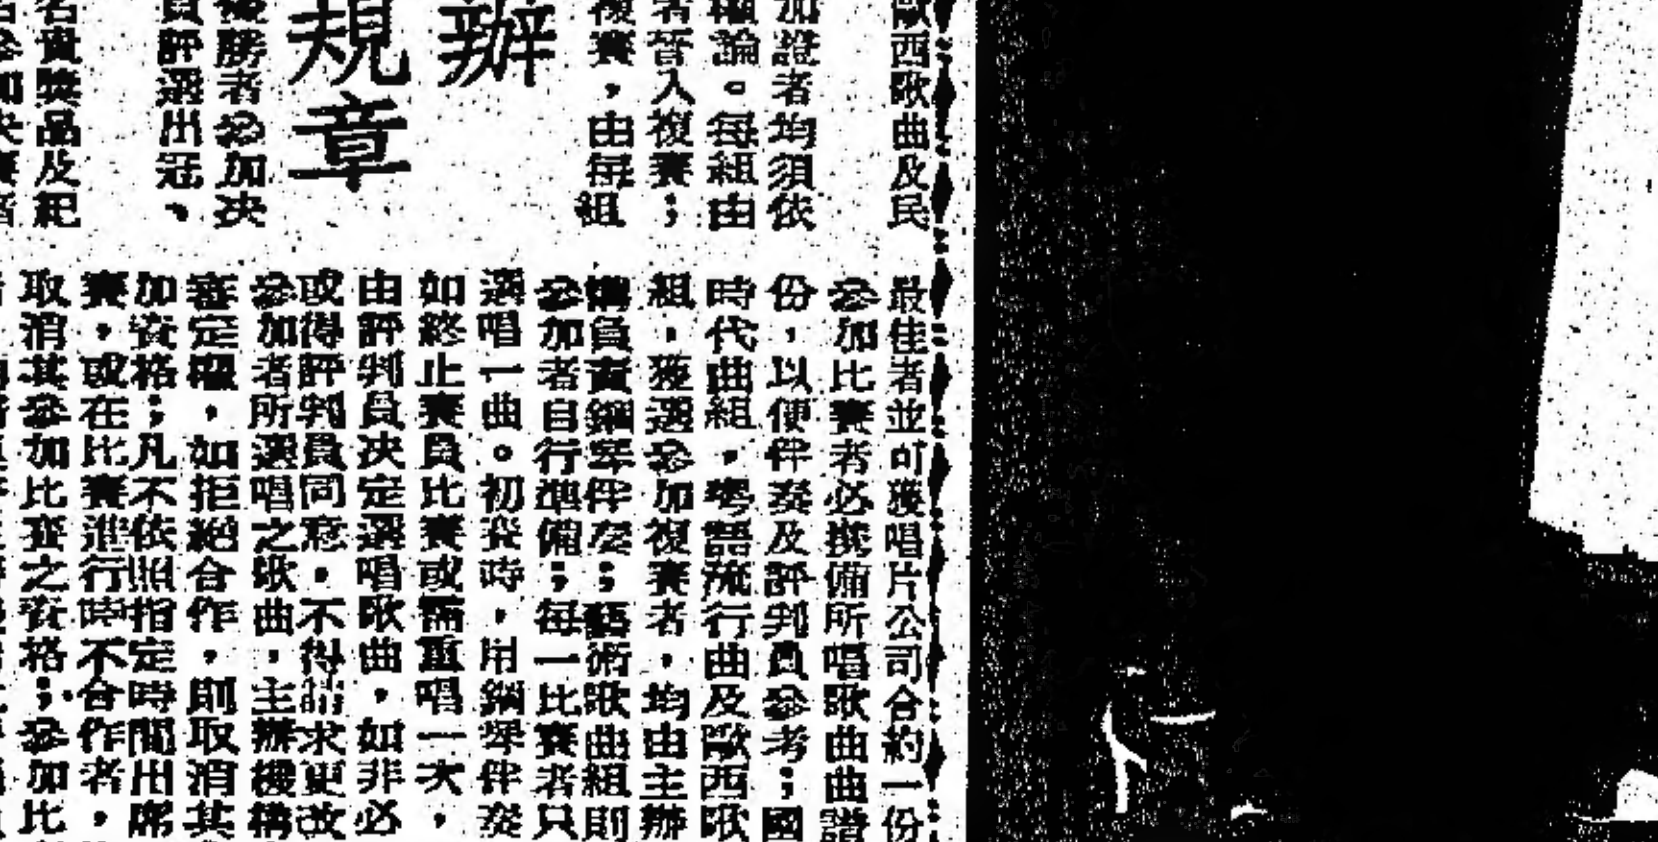 歐西歌曲及民
加證者均須依
論。每組由
者晉入複賽;
複賽,由每組
辦
規章
後勝者參加決
員評選出冠、
名貴獎品及紀
名參加決賽者
最佳者並可獲唱片公司合約一份
參加比賽者必撰備所唱歌曲曲譜
份,以便伴奏及評判員參考;國
時代曲組,粵語流行曲及歐西歌
組,獲選參加複賽者,均由主辦
構負責鋼琴伴奏;藝術歌曲組則
參加者自行準備;每一比賽者只
選唱一曲。初賽時,用鋼琴伴奏
如終止賽員比賽或需重唱一次,
由評判員決定選唱歌曲,如非必
或得評判員同意,不得請求更改
參加者所選唱之歌曲,主辦機構
審定權,如拒絕合作,則取消其
加資格;凡不依照指定時間出席
賽,或在比賽進行時不合作者,
取消其參加比賽之資格;參加比